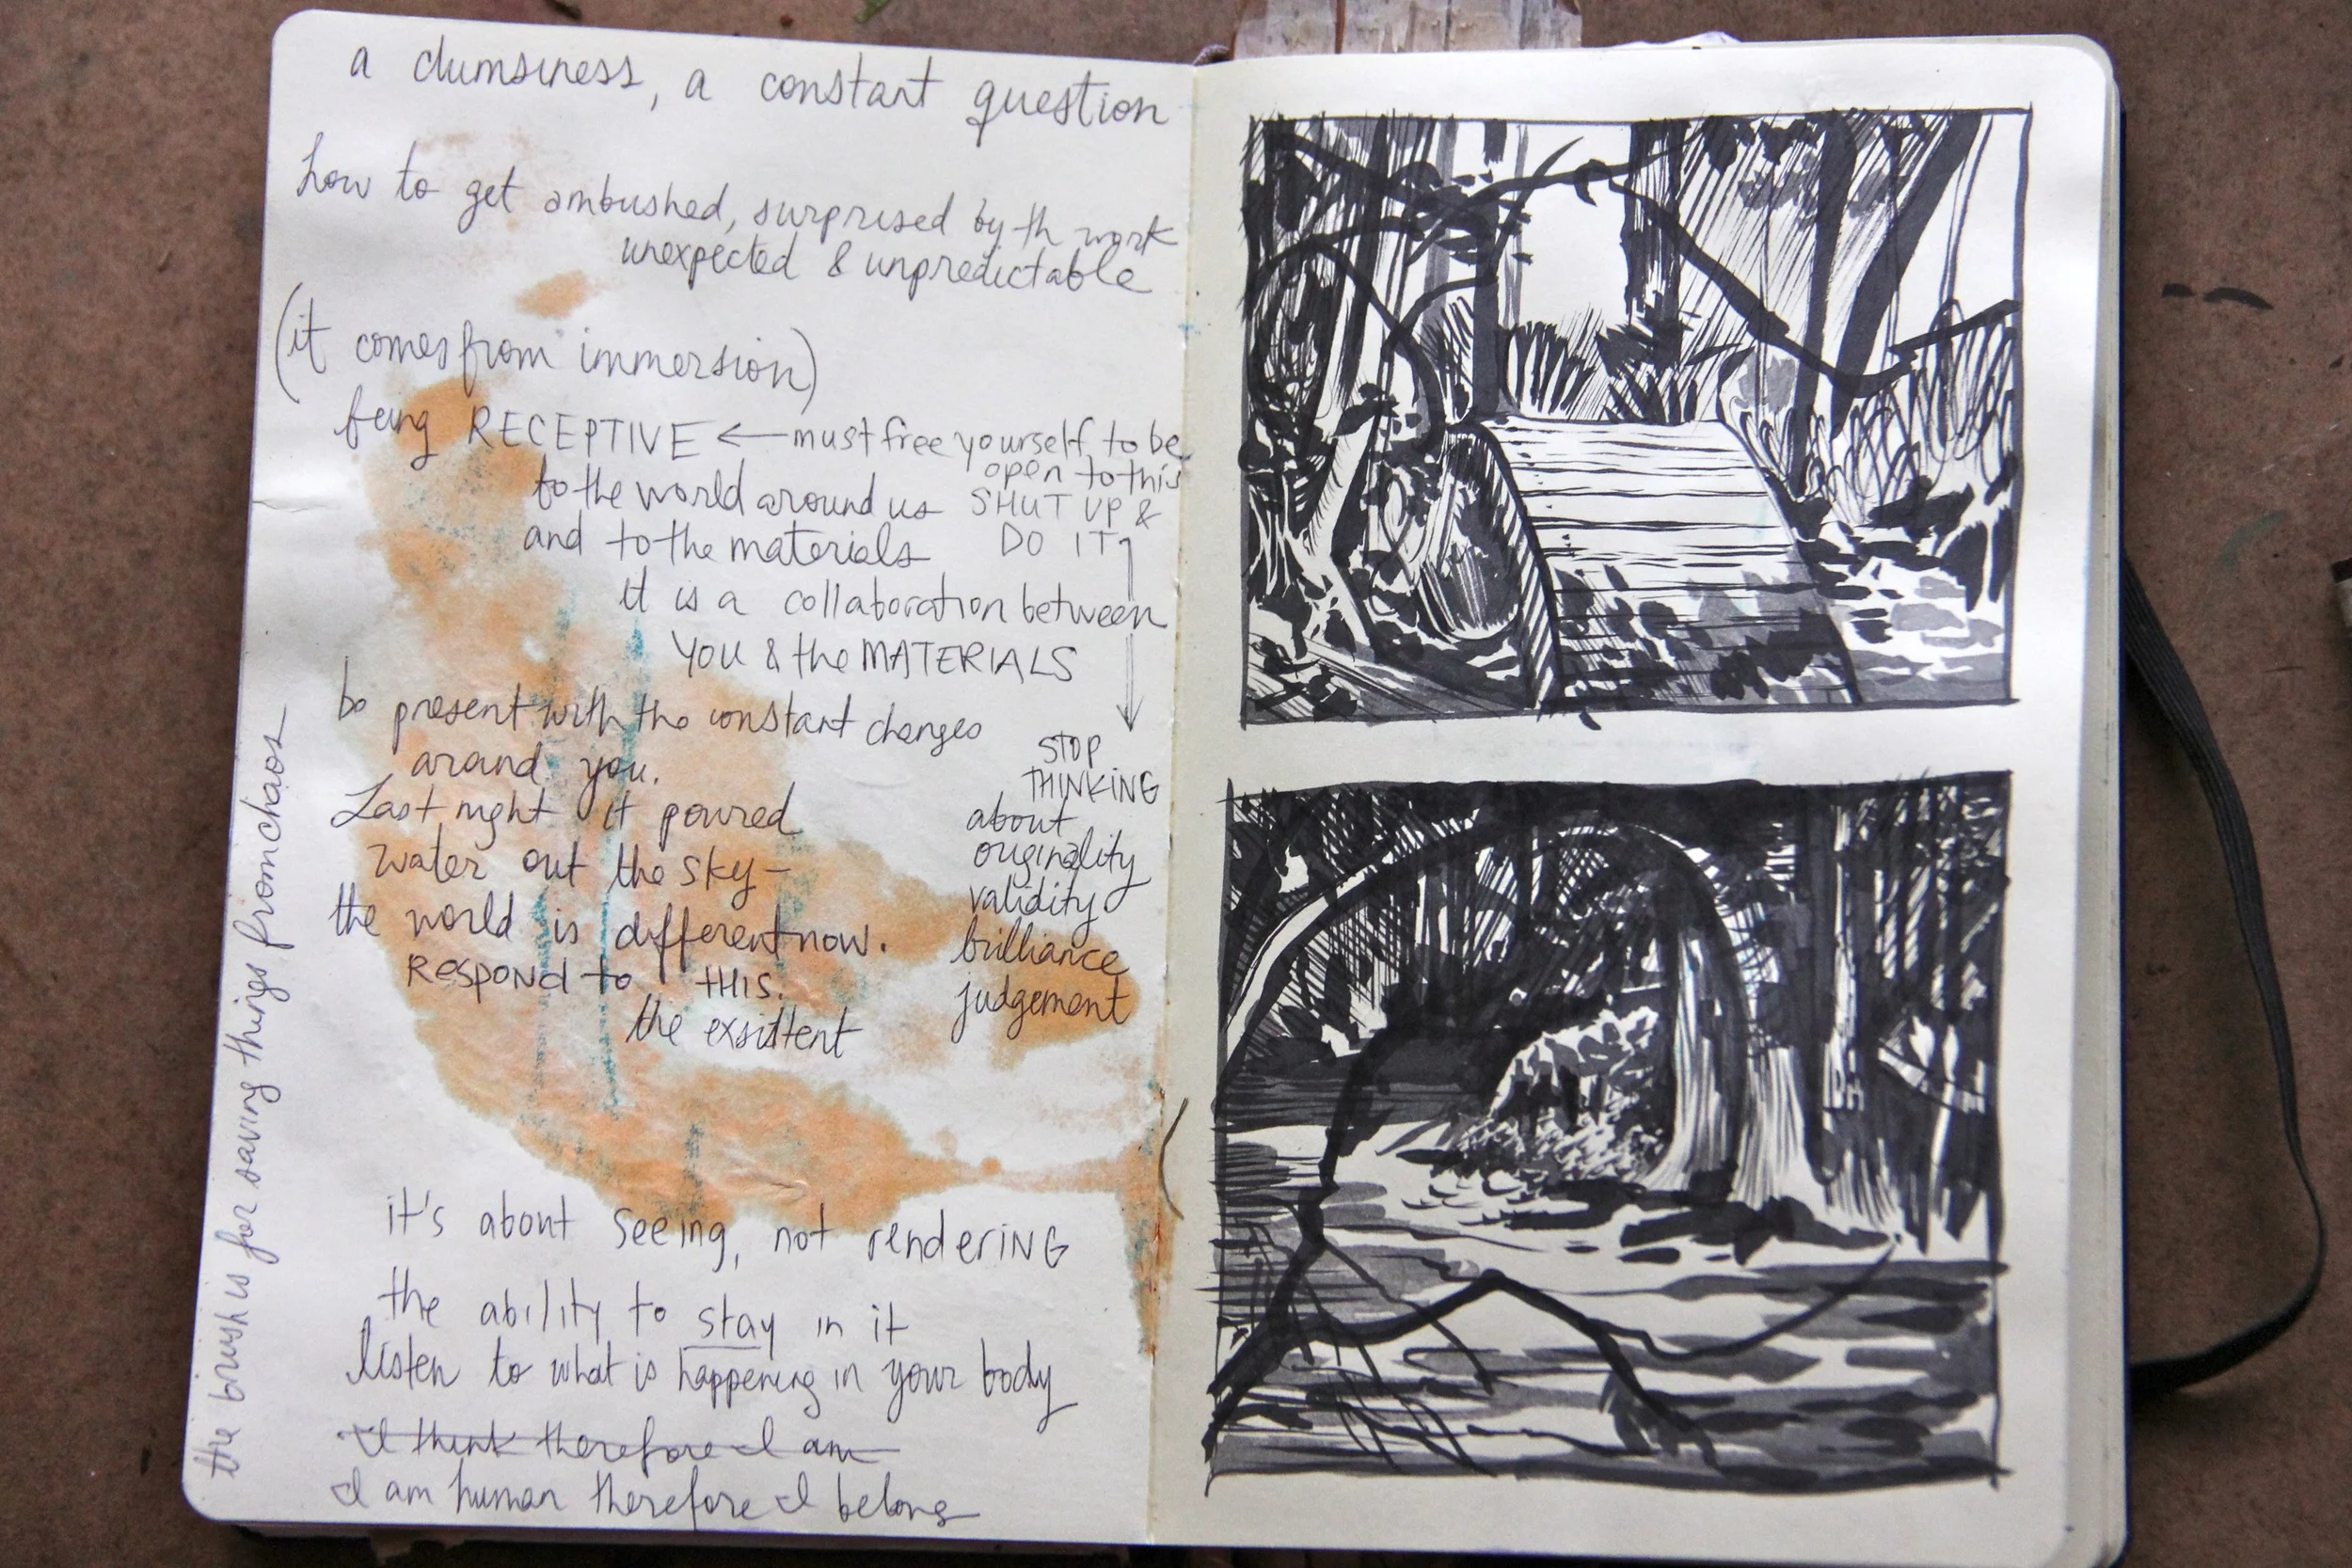 a clumsiness, a constant question
how to get ambushed, surprised by th work
unexpected & unpredictable
(it comes from immersion)
being RECEPTIVE ← must free yourself to be
open to this
to the world around us
SHUT UP &
and to the materials
DO IT
it is a collaboration between
YOU & the MATERIALS
be present with the constant changes
around you.
STOP
THINKING
about
originality
validity
brilliance
judgement
Last night it poured
water out the sky -
the world is different now.
RESPOND to THIS.
the exsistent
it's about seeing, not rendering
the ability to stay in it
listen to what is happening in your body
I think therefore I am
I am human therefore I belong
the brush is for saving things from chaos